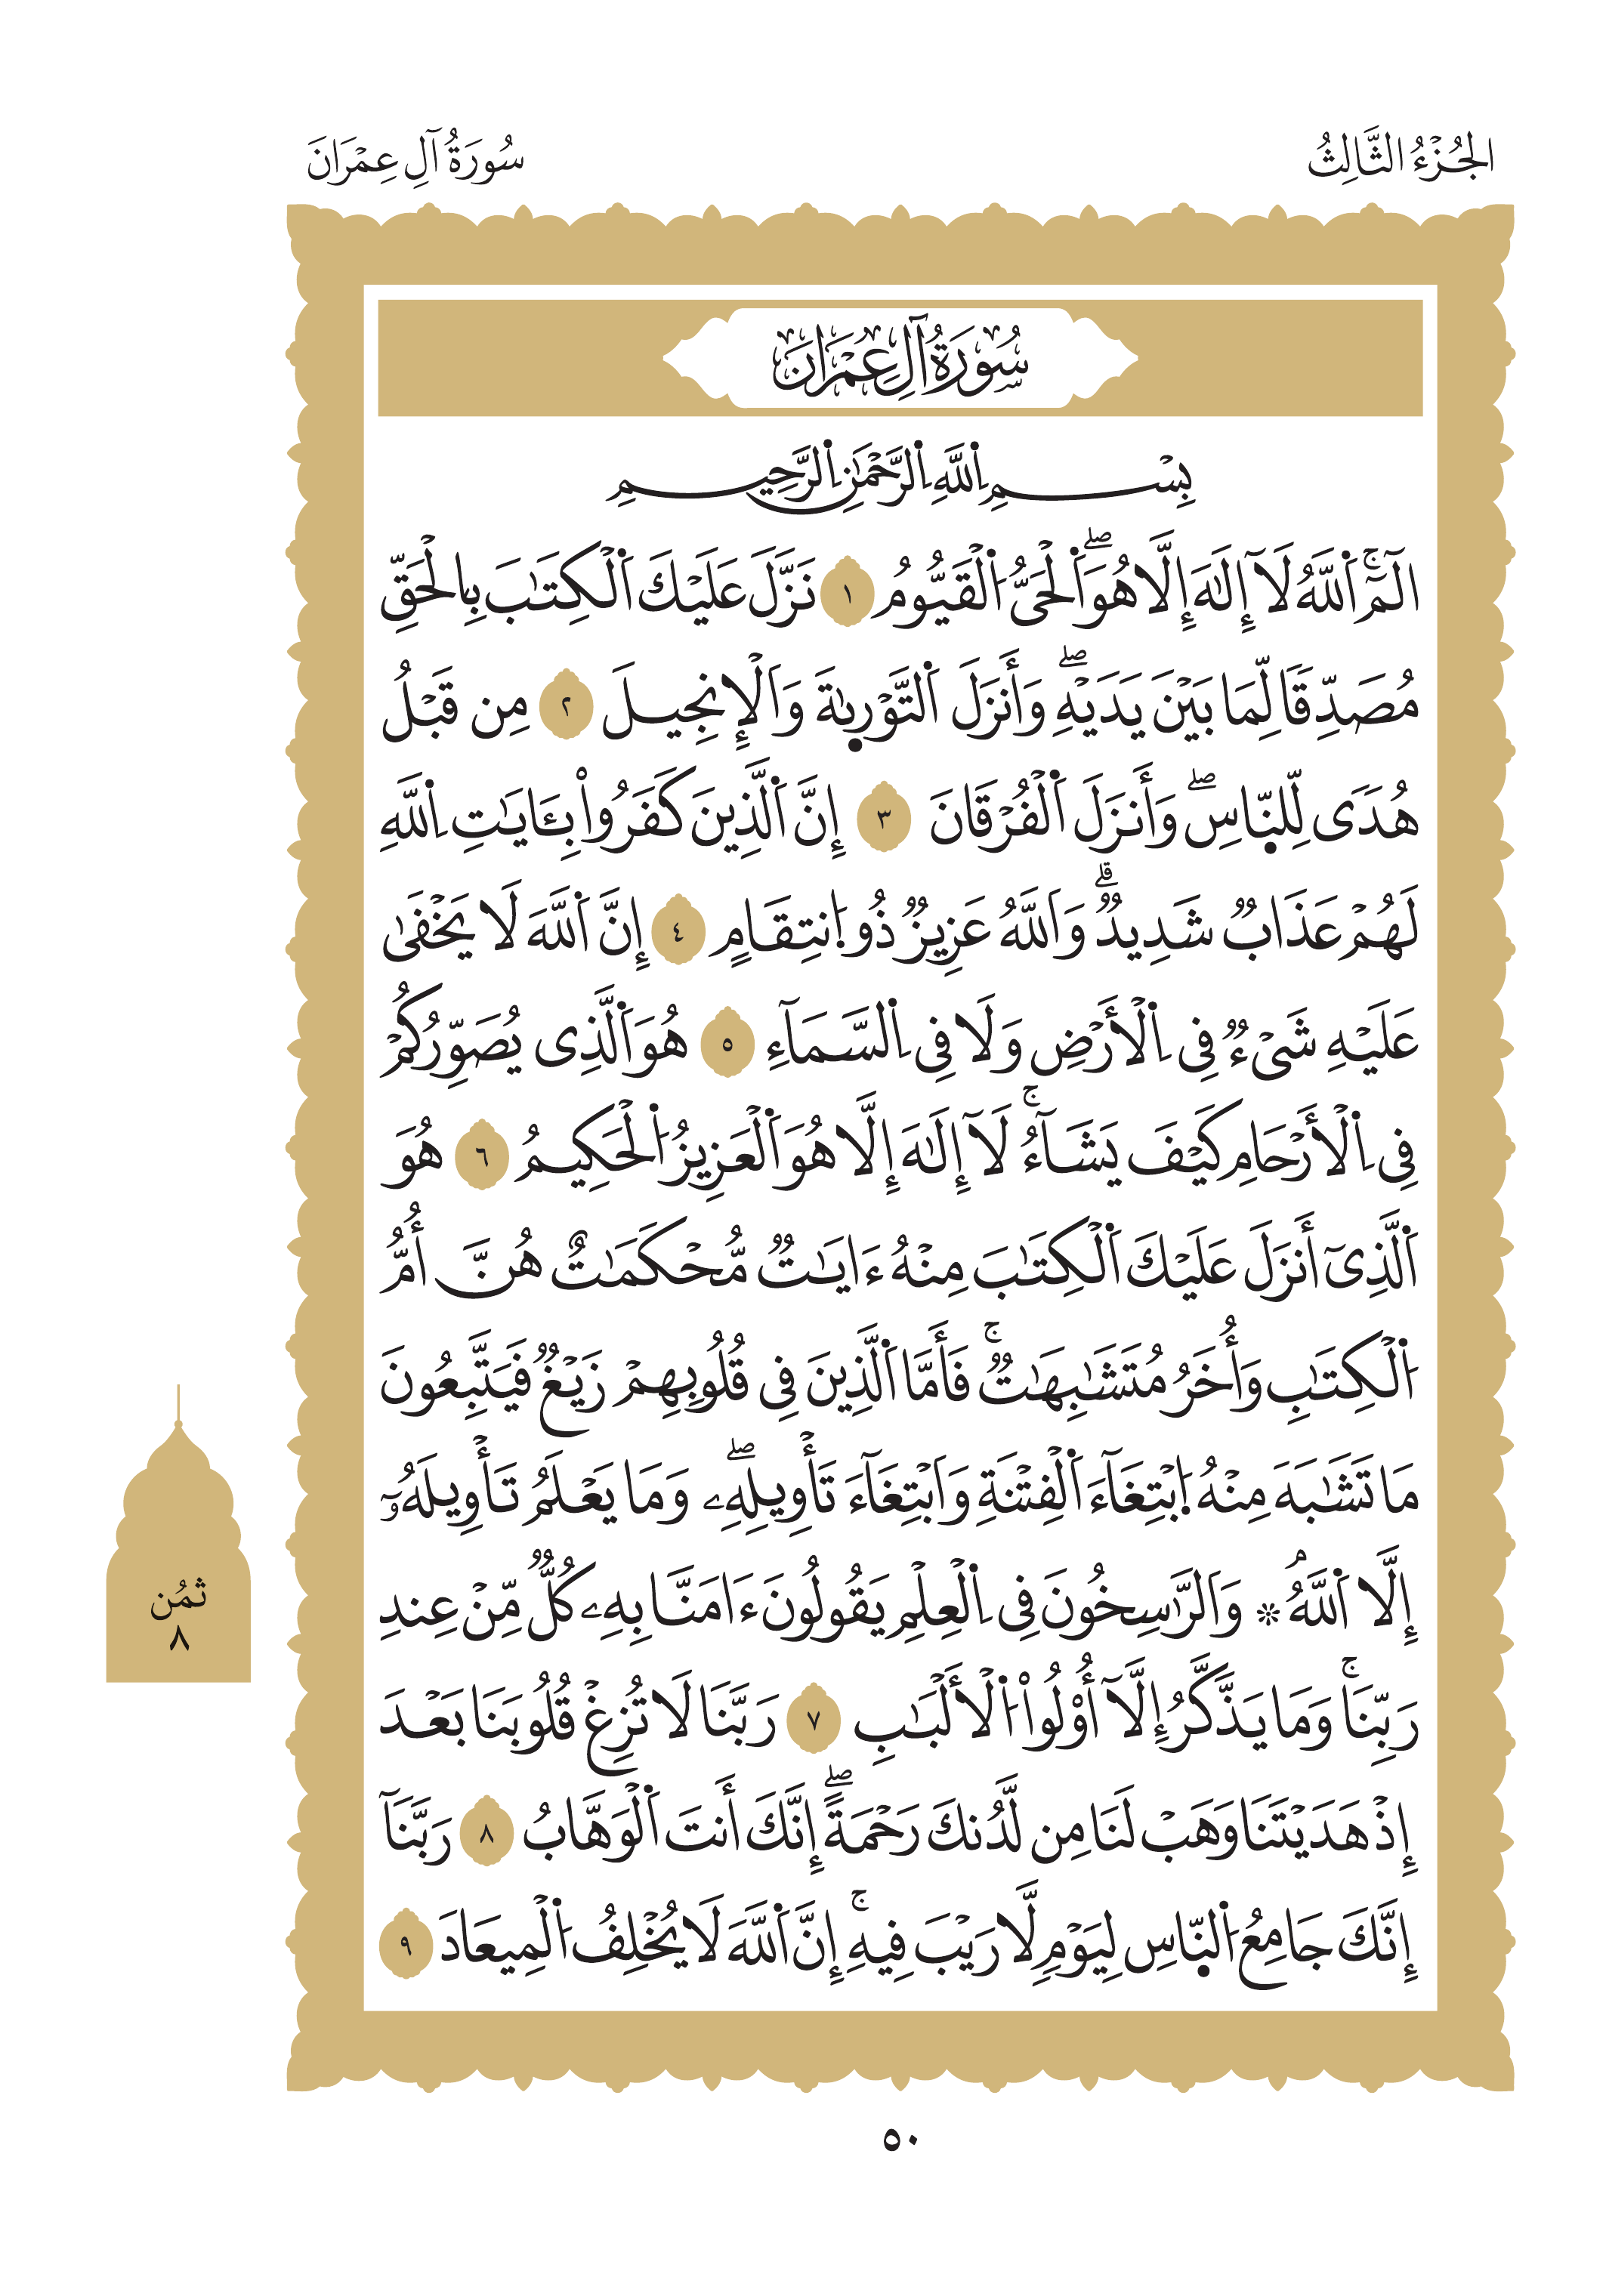 الجُزْءُ الثَّالِثُ
سُورَةُ آلِ عِمْرَانَ
سُورَةُ آلِ عِمْرَانَ
بِسْمِ اِللَّهِ اِلرَّحْمَٰنِ اِلرَّحِيمِ
الٓمٓۚ اَ۬للَّهُ لَآ إِلَٰهَ إِلَّا هُوَۖ اَ۬لْحَيُّ اُ۬لْقَيُّومُ ١ نَزَّلَ عَلَيْكَ اَ۬لْكِتَٰبَ بِالْحَقِّ
مُصَدِّقاٗ لِّمَا بَيْنَ يَدَيْهِۖ وَأَنزَلَ اَ۬لتَّوْر۪ىٰةَ وَالْإِنجِيلَ ٢ مِن قَبْلُ
هُدىٗ لِّلنّ۪اسِۖ وَأَنزَلَ اَ۬لْفُرْقَانَ ٣ إِنَّ اَ۬لذِينَ كَفَرُواْ بِـَٔايَٰتِ اِ۬للَّهِ
لَهُمْ عَذَابٞ شَدِيدٞۗ وَاللَّهُ عَزِيزٞ ذُو اُ۪نتِقَامٍ ٤ إِنَّ اَ۬للَّهَ لَا يَخْفَىٰ
عَلَيْهِ شَيْءٞ فِي اِ۬لْأَرْضِ وَلَا فِي اِ۬لسَّمَآءِ ٥ هُوَ اَ۬لَّذِي يُصَوِّرُكُمْ
فِي اِ۬لْأَرْحَامِ كَيْفَ يَشَآءُۚ لَآ إِلَٰهَ إِلَّا هُوَ اَ۬لْعَزِيزُ اُ۬لْحَكِيمُ ٦ هُوَ
اَ۬لَّذِيٓ أَنزَلَ عَلَيْكَ اَ۬لْكِتَٰبَ مِنْهُ ءَايَٰتٞ مُّحْكَمَٰتٌ هُنَّ أُمُّ
اُ۬لْكِتَٰبِ وَأُخَرُ مُتَشَٰبِهَٰتٞۚ فَأَمَّا اَ۬لَّذِينَ فِي قُلُوبِهِمْ زَيْغٞ فَيَتَّبِعُونَ
مَا تَشَٰبَهَ مِنْهُ اُ۪بْتِغَآءَ اَ۬لْفِتْنَةِ وَابْتِغَآءَ تَأْوِيلِهِۦۖ وَمَا يَعْلَمُ تَأْوِيلَهُۥٓ
إِلَّا اَ۬للَّهُۘ ۞ وَالرَّٰسِخُونَ فِي اِ۬لْعِلْمِ يَقُولُونَ ءَامَنَّا بِهِۦ كُلّٞ مِّنْ عِندِ
رَبِّنَاۚ وَمَا يَذَّكَّرُ إِلَّآ أُوْلُواْ اُ۬لْأَلْبَٰبِ ٧ رَبَّنَا لَا تُزِغْ قُلُوبَنَا بَعْدَ
إِذْ هَدَيْتَنَا وَهَبْ لَنَا مِن لَّدُنكَ رَحْمَةًۖ إِنَّكَ أَنتَ اَ۬لْوَهَّابُ ٨ رَبَّنَآ
إِنَّكَ جَامِعُ اُ۬لنّ۪اسِ لِيَوْمٖ لَّا رَيْبَ فِيهِۚ إِنَّ اَ۬للَّهَ لَا يُخْلِفُ اُ۬لْمِيعَادَ ٩
ثمُن
٨
٥٠